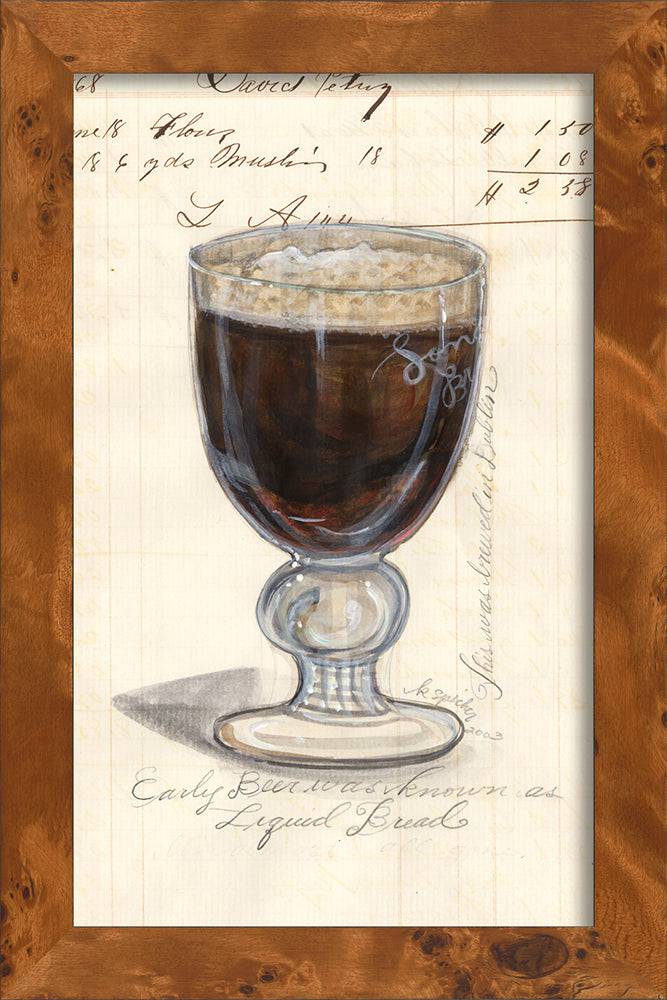 68 David Petry
ne 18 Flour # 1 50
18 6 yds Muslin 18 1 08
# 2 58
This was brewed in Dublin
k Spicher
2002
Early Beer was known as
Liquid Bread